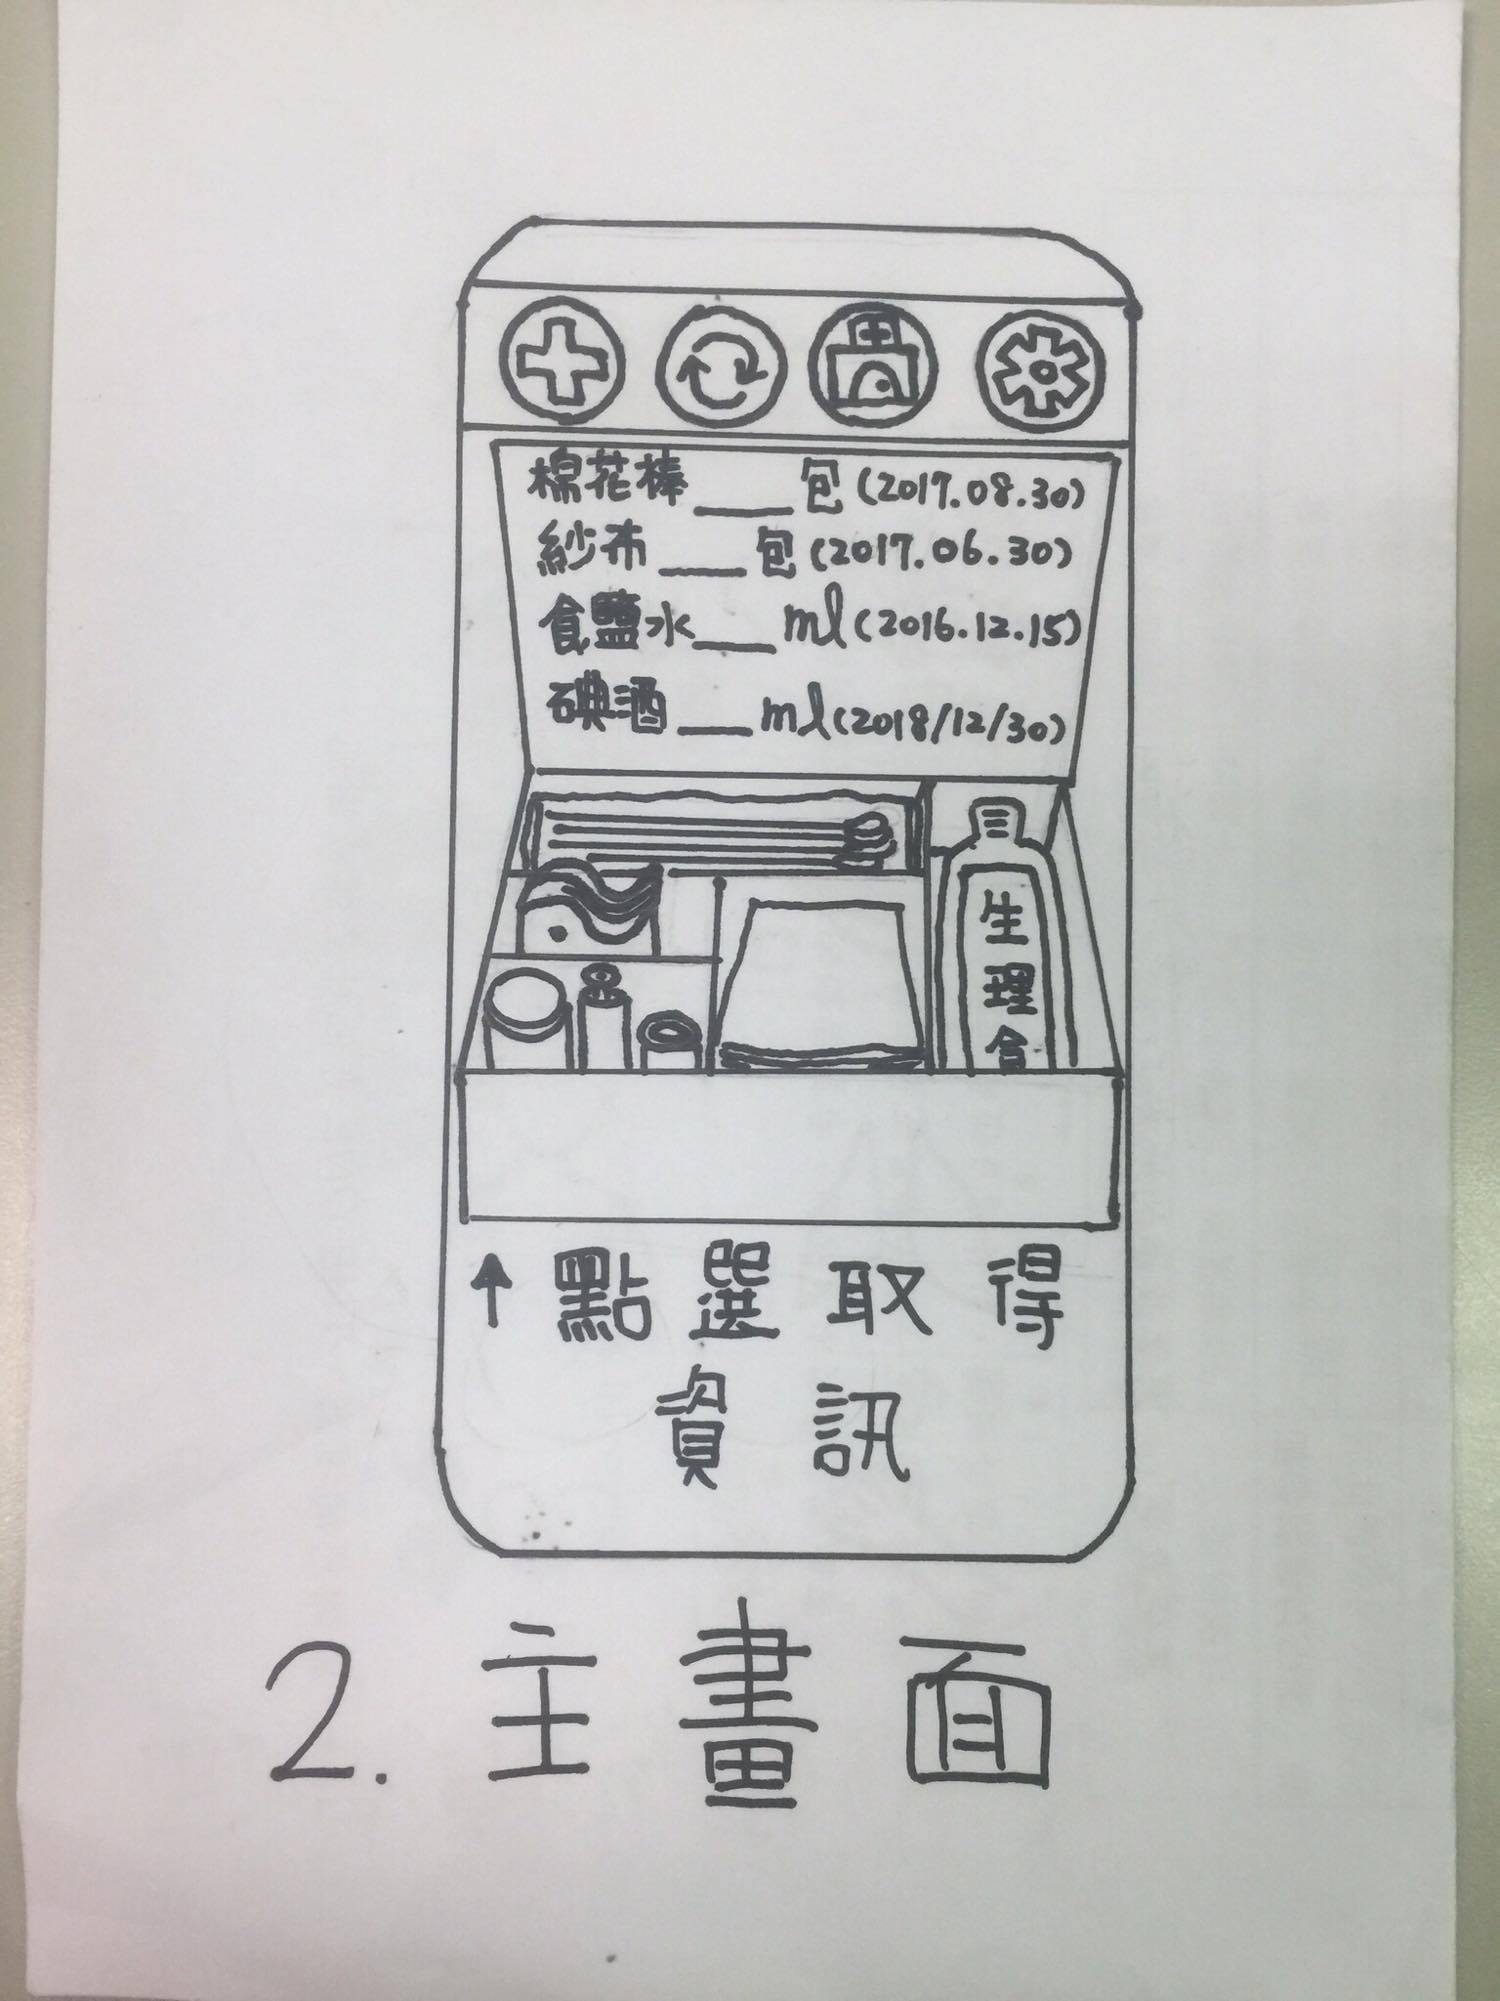 棉花棒___包(2017.08.30)
紗布___包(2017.06.30)
食鹽水___ml(2016.12.15)
碘酒___ml(2018/12/30)
生理食
↑點選取得
資訊
2.主畫面